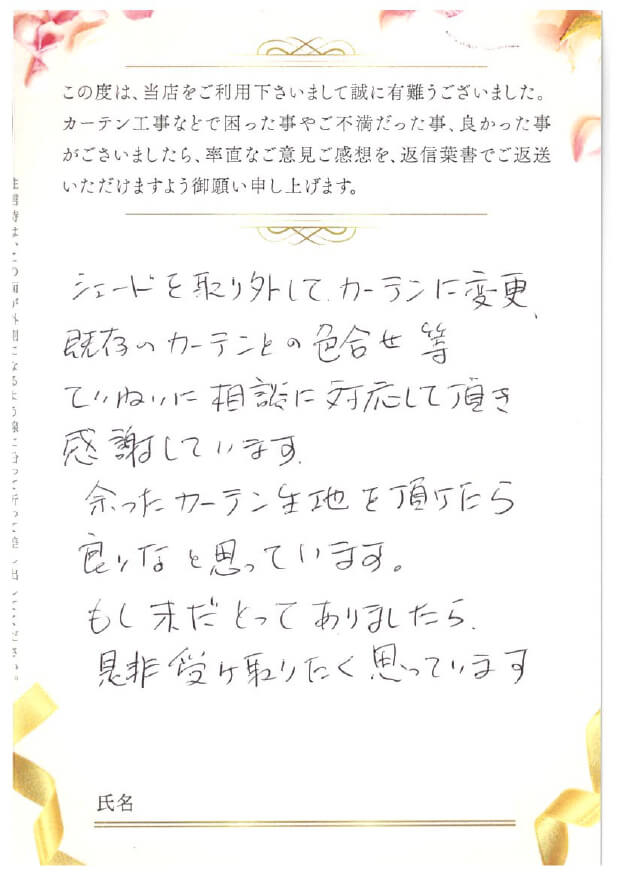 この度は、当店をご利用下さいまして誠に有難うございました。
カーテン工事などで困った事やご不満だった事、良かった事
がございましたら、率直なご意見ご感想を、返信葉書でご返送
いただけますよう御願い申し上げます。
シェードを取り外して、カーテンに変更、
既存のカーテンとの色合せ等
ていねいに相談に対応して頂き
感謝しています。
余ったカーテン生地を頂けたら
良いなと思っています。
もし未だとってありましたら、
是非受け取りたく思っています
氏名